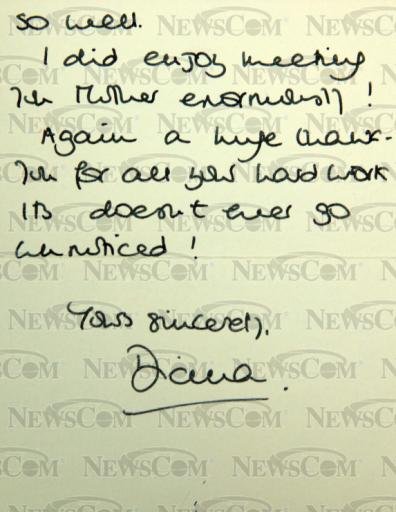 so well.
I did enjoy meeting
you Mother enormously!
Again a huge thank-
you for all your hard work
Its doesn't ever go
unnoticed!
Yours sincerely,
Diana.
NEWSCOM